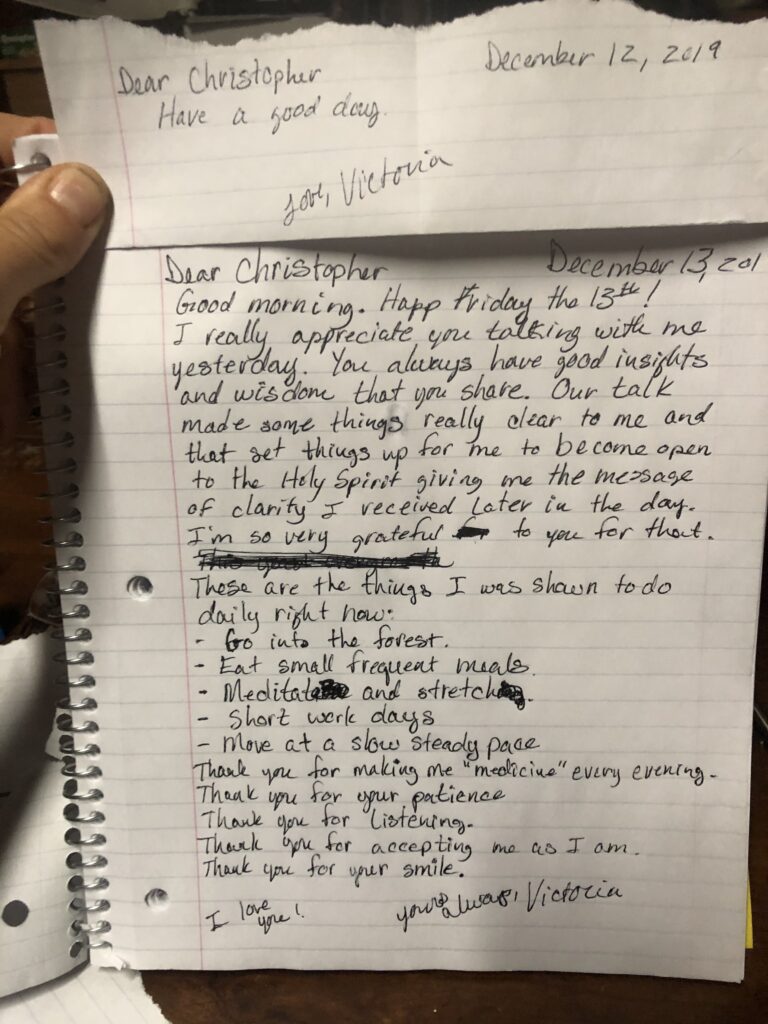 December 12, 2019
Dear Christopher
Have a good day.
Love, Victoria
Dear Christopher
December 13, 201
Good morning. Happ Friday the 13th!
I really appreciate you talking with me
yesterday. You always have good insights
and wisdom that you share. Our talk
made some things really clear to me and
that set things up for me to become open
to the Holy Spirit giving me the message
of clarity I received later in the day.
I'm so very grateful to you for that.
These are the things I was shown to do
daily right now:
- Go into the forest.
- Eat small frequent meals.
- Meditate and stretch.
- Short work days
- Move at a slow steady pace
Thank you for making me "medicine" every evening.
Thank you for your patience
Thank you for listening.
Thank you for accepting me as I am.
Thank you for your smile.
I love you!
yours always, Victoria